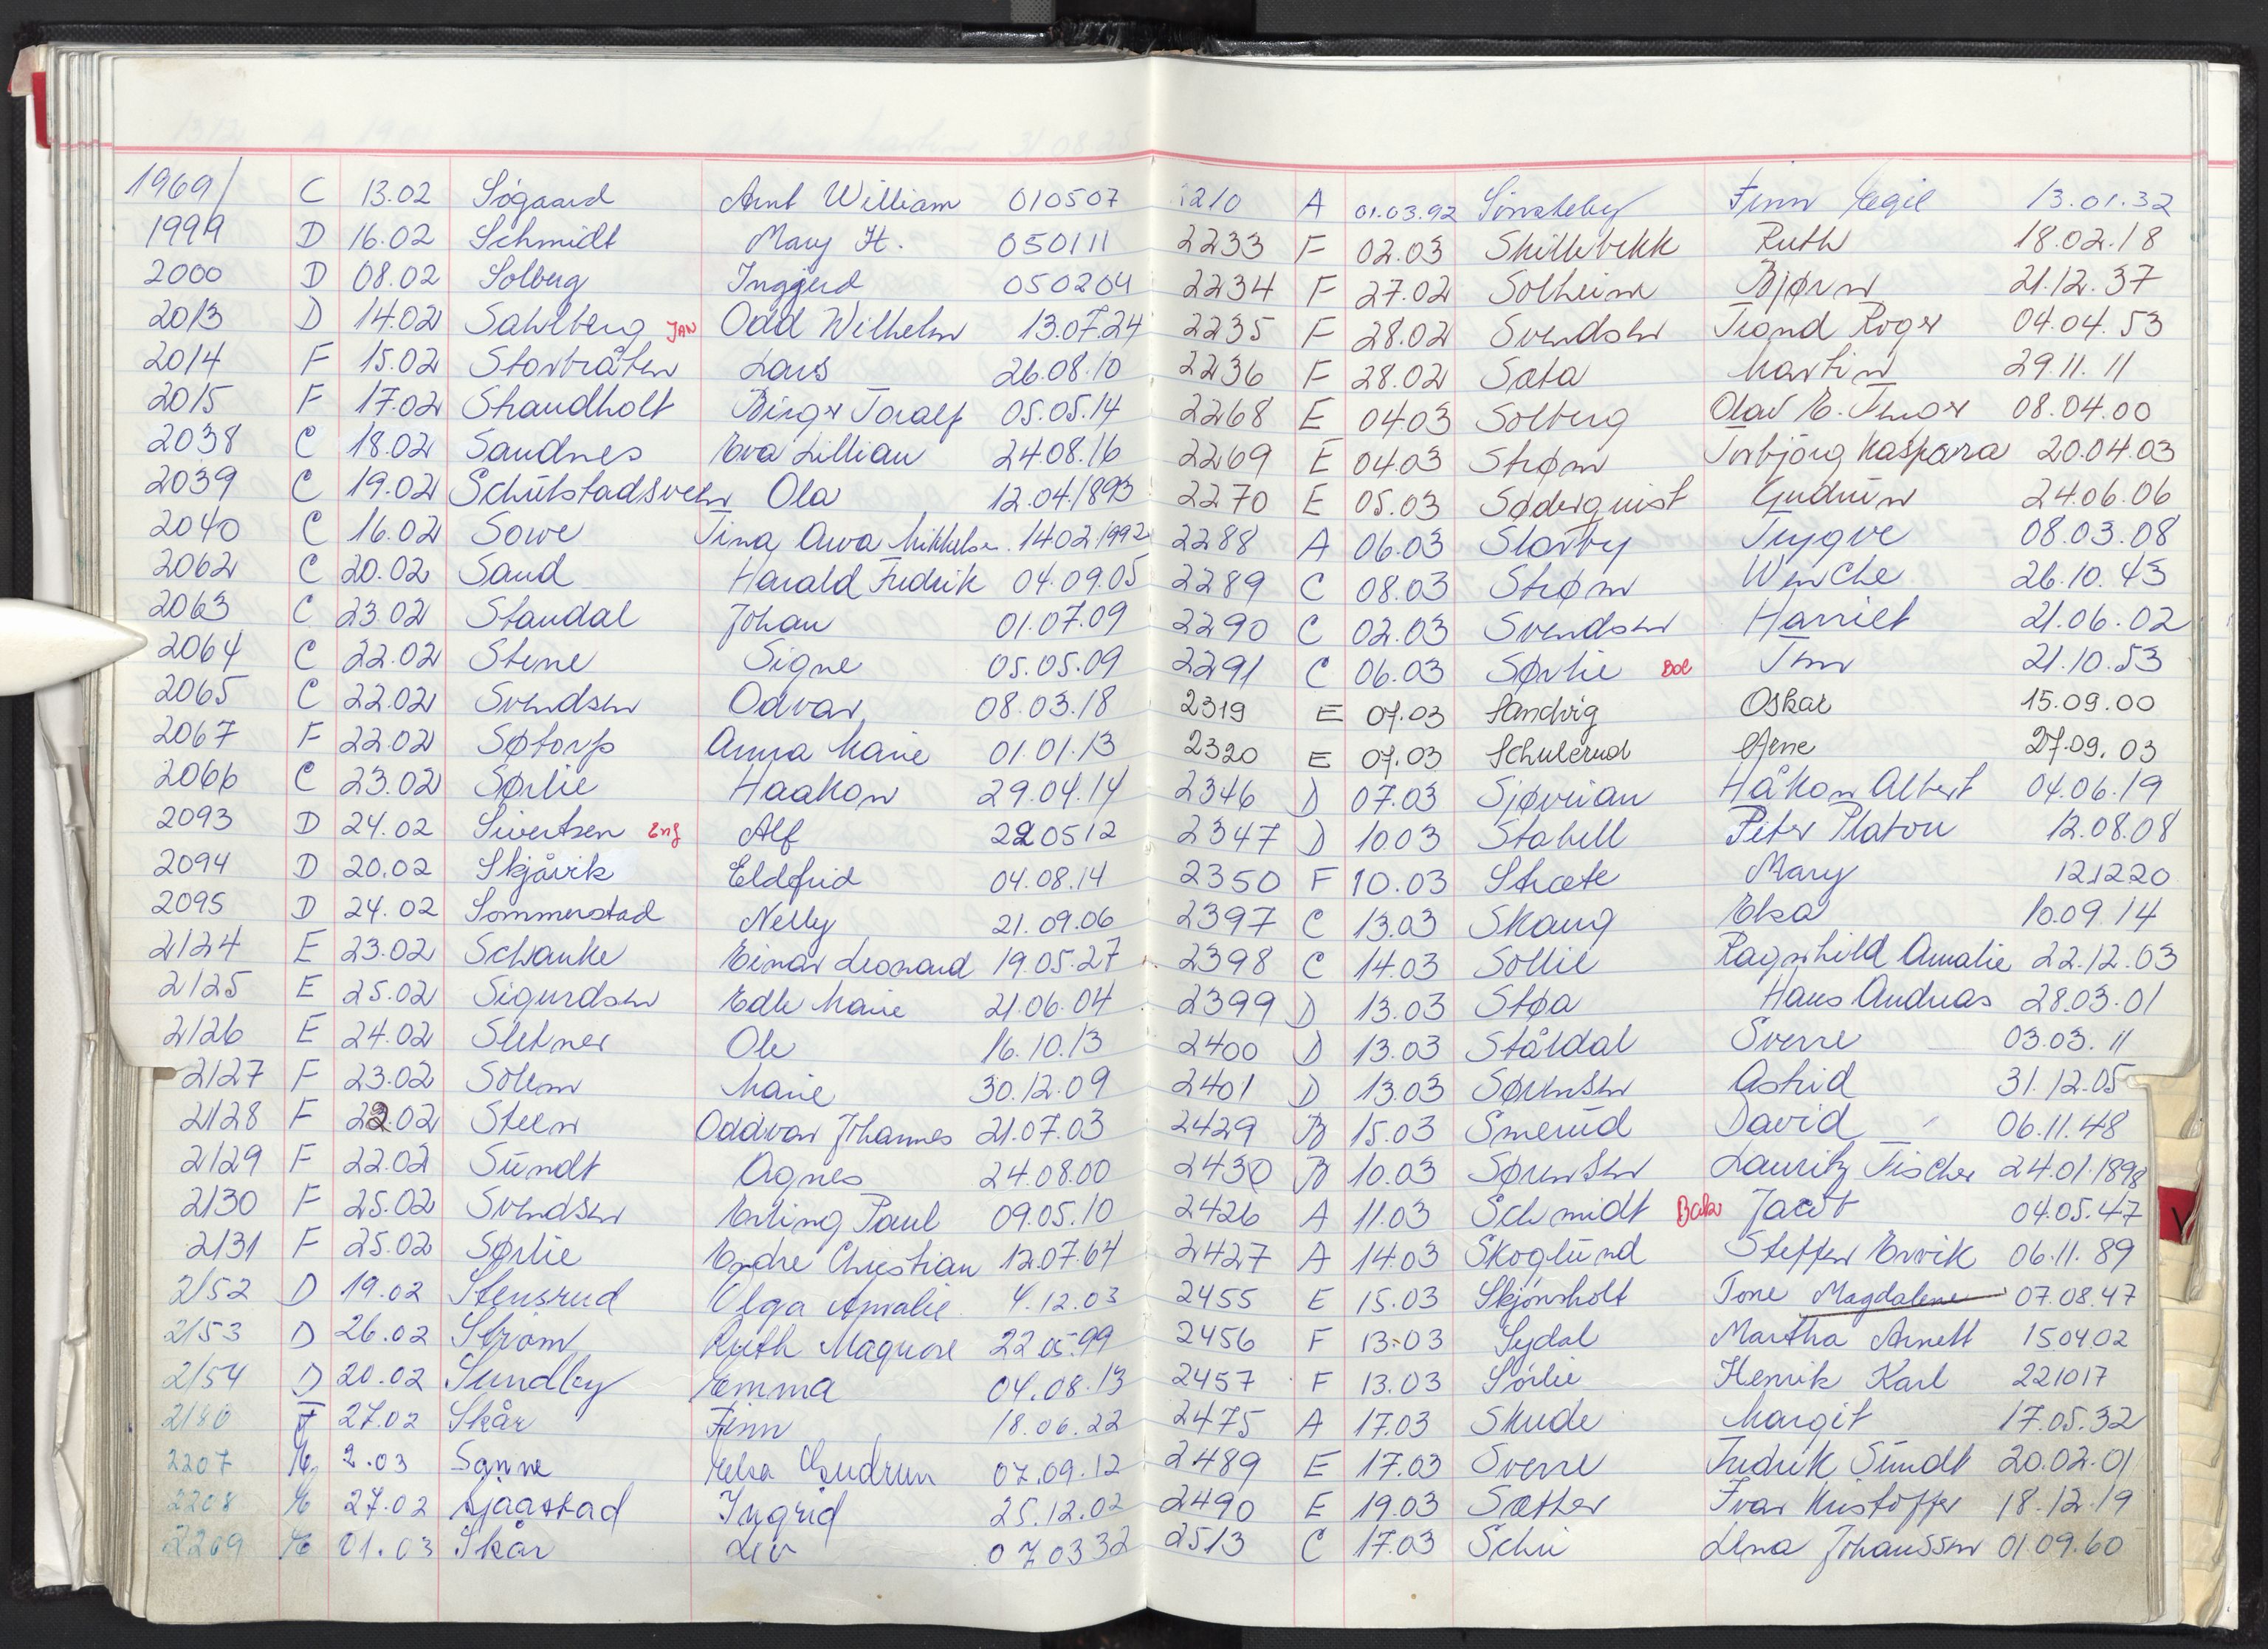 1969/ C 13.02 Søgaard Arnt William 010507
1999 D 16.02 Schmidt Mary H. 050111
2000 D 08.02 Solberg Inggjerd 050204
2013 D 14.02 Sahlberg JAN Odd Wilhelm 13.07.24
2014 F 15.02 Storbråten Lars 26.08.10
2015 F 17.02 Strandholt Birger Toralf 05.05.14
2038 C 18.02 Sandnes Eva Lillian 24.08.16
2039 C 19.02 Schulstadsveen Ola 12.04.1893
2040 C 16.02 Sowe Tina Awa Mikkelsen 14.02.1992
2062 C 20.02 Sand Harald Fredrik 04.09.05
2063 C 23.02 Standal Johan 01.07.09
2064 C 22.02 Stene Signe 05.05.09
2065 C 22.02 Svendsen Odvar 08.03.18
2067 F 22.02 Søtorp Anna Marie 01.01.13
2066 C 23.02 Sørlie Haakon 29.04.14
2093 D 24.02 Sivertsen Eng Alf 220512
2094 D 20.02 Skjåvik Eldfrid 04.08.14
2095 D 24.02 Sommerstad Nelly 21.09.06
2124 E 23.02 Schanke Einar Leonard 19.05.27
2125 E 25.02 Sigurdsen Edle Marie 21.06.04
2126 E 24.02 Sletner Ole 16.10.13
2127 F 23.02 Solem Marie 30.12.09
2128 F 22.02 Steen Oddvar Johannes 21.07.03
2129 F 22.02 Sundt Agnes 24.08.00
2130 F 25.02 Svendsen Erling Paul 09.05.10
2131 F 25.02 Sørlie Endre Christian 12.07.64
2152 D 19.02 Stensrud Olga Amalie 4.12.03
2153 D 26.02 Strøm Ruth Magnore 22.05.99
2154 D 20.02 Sundby Emma 04.08.13
2180 F 27.02 Skår Finn 18.06.22
2207 E 2.03 Sanne Elsa Gudrun 07.09.12
2208 E 27.02 Sjaastad Ingrid 25.12.02
2209 E 01.03 Skår Liv 070332
2210 A 01.03.92 Sønsteby Finn Egil 13.01.32
2233 F 02.03 Skillebekk Ruth 18.02.18
2234 F 27.02 Solheim Bjørn 21.12.37
2235 F 28.02 Svendsen Trond Roger 04.04.53
2236 F 28.02 Sata Martin 29.11.11
2268 E 04.03 Solberg Olav E. 08.04.00
2269 E 04.03 Strøm Torbjörg Kaspara 20.04.03
2270 E 05.03 Søderquist Gudrun 24.06.06
2288 A 06.03 Storby Trygve 08.03.08
2289 C 08.03 Strøm Wenche 26.10.43
2290 C 02.03 Svendsen Harriet 21.06.02
2291 C 06.03 Sørlie Bol Tom 21.10.53
2319 E 07.03 Sandvig Oskar 15.09.00
2320 E 07.03 Schulerud Arne 27.09.03
2346 D 07.03 Sjøvrian Håkon Albert 04.06.19
2347 D 10.03 Stabell Peter Platou 12.08.08
2350 F 10.03 Stræte Mary 121220
2397 C 13.03 Skaug Elsa 10.09.14
2398 C 14.03 Sollie Ragnhild Amalie 22.12.03
2399 D 13.03 Støa Hans Andreas 28.03.01
2400 D 13.03 Ståldal Sverre 03.03.11
2401 D 13.03 Sørensen Astrid 31.12.05
2429 B 15.03 Smerud David 06.11.48
2430 B 10.03 Sørensen Lauritz Fischer 24.01.1898
2426 A 11.03 Schmidt Jacob 04.05.47
2427 A 14.03 Skoglund Steffen Ervik 06.11.89
2455 E 15.03 Skjønsholt Tone Magdalene 07.08.47
2456 F 13.03 Sydal Martha Arnett 150402
2457 F 13.03 Sørlie Henrik Karl 221017
2475 A 17.03 Skude Margit 17.05.32
2489 E 17.03 Sverre Fredrik Sundt 20.02.01
2490 E 19.03 Sæther Ivar Kristoffer 18.12.19
2513 C 17.03 Schie Lena Johanssen 01.09.60